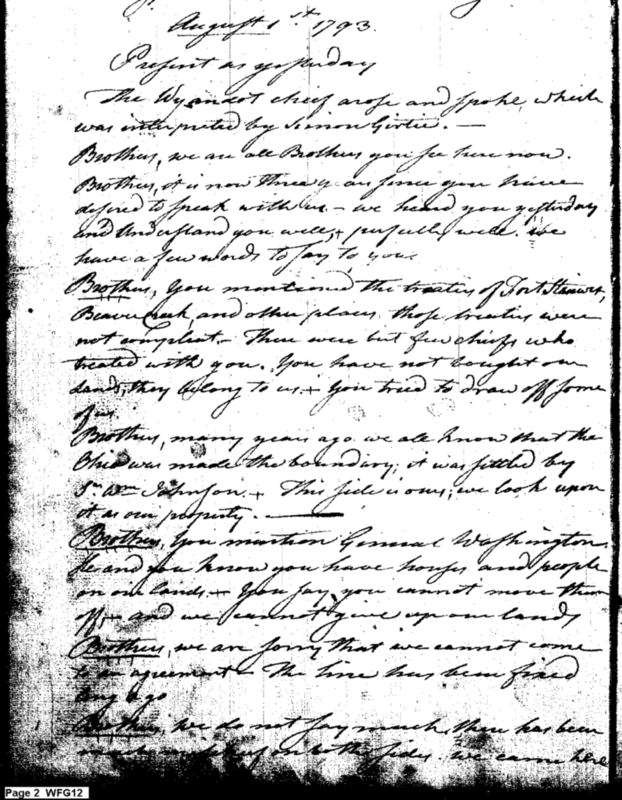 August 1st 1793.
Present as yesterday
The Wyandot chief arose and spoke, which
was interpreted by Simon Girtie. —
Brothers, we are all Brothers you see here now.
Brothers, it is now three years since you have
desired to speak with us - we heard you yesterday
and understand you well, perfectly well. we
have a few words to say to you.
Brothers, You mentioned the treaties of Fort Stanwix,
Beaver creek, and other places. those treaties were
not compleat. There were but few chiefs who
treated with you. You have not bought our
Lands; they belong to us. You tried to draw off some
of us.
Brothers, many years ago we all know that the
Ohio was made the boundary; it was settled by
Sr. Wm Johnson. This side is ours; we look upon
it as our property.
Brothers, You mention General Washington.
He and you know you have houses and people
on our lands. You say, you cannot move them
off, and we cannot give up our lands
Brothers, we are sorry that we cannot come
to an agreement - The line has been fixed
long ago
Brothers, we do not say much, there has been
much mischief on both sides. we came here
Page 2 WFG12